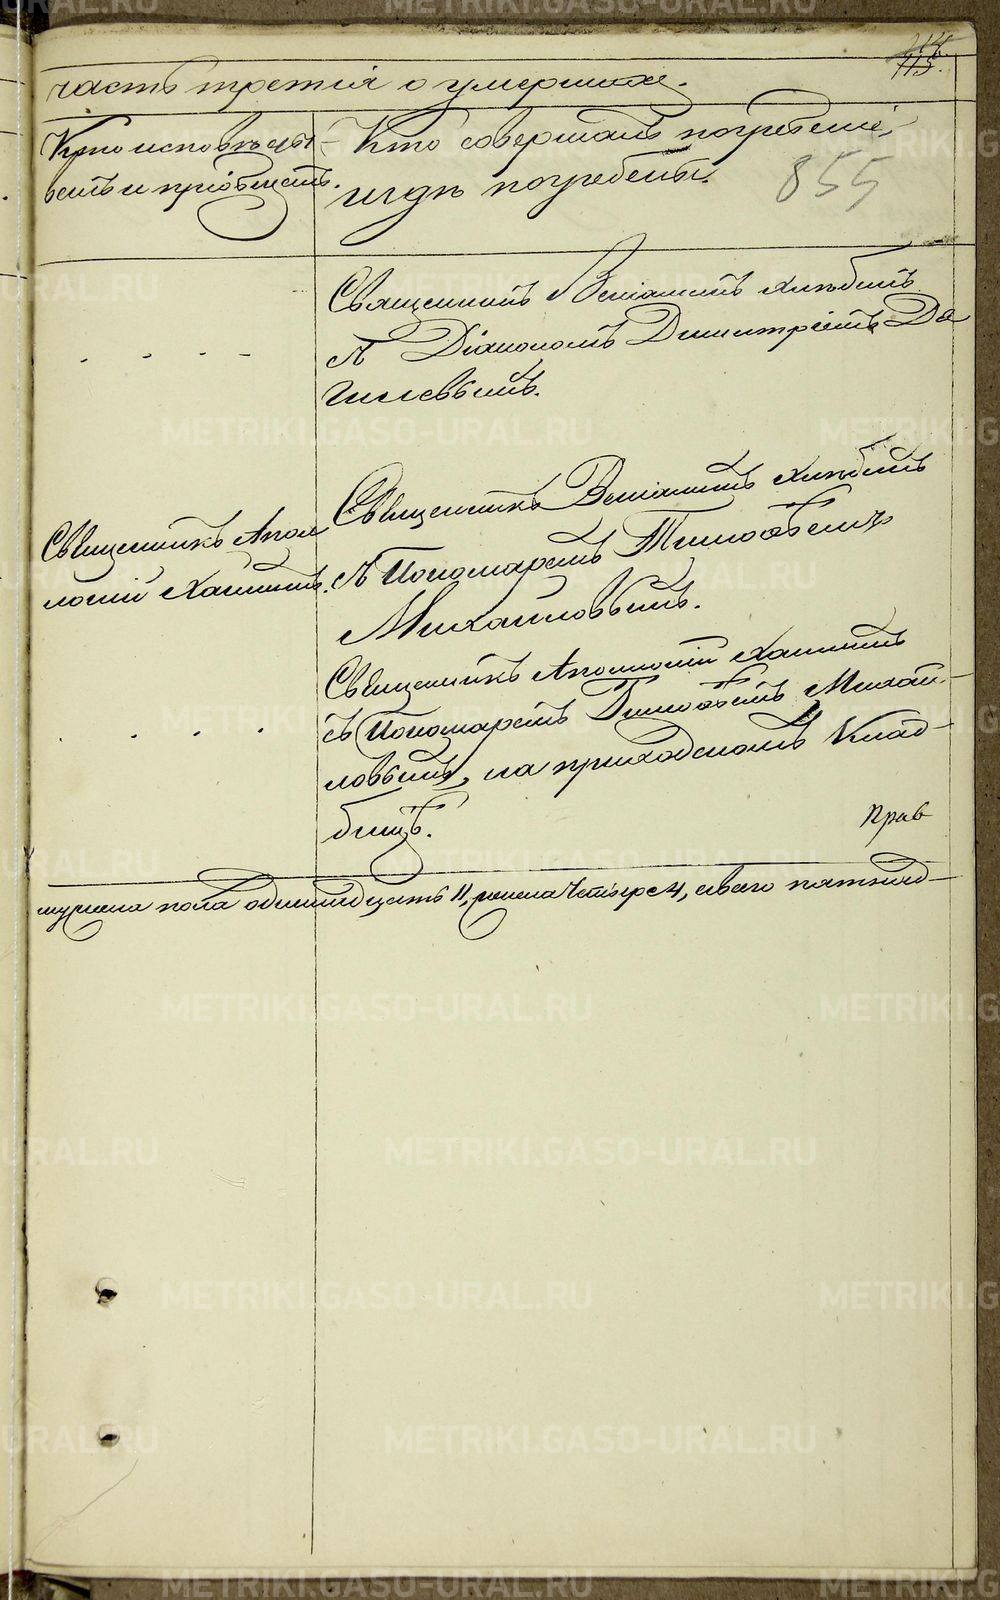 115.
часть третія о умершихъ.
Кто исповѣды-
валъ и пріобщалъ.
Кто совершалъ погребеніе,
и гдѣ погребены.
855
Священникъ Веніаминъ Хлѣбинъ
съ Діакономъ Димитріемъ Да
гилевымъ.
Священникъ Апол
лоній Ханинъ.
Священникъ Веніаминъ Хлѣбинъ
съ Пономаремъ Тимоѳеемъ
Михайловымъ.
Священникъ Аполлоній Ханинъ
съ Пономаремъ Тимоѳеемъ Михай-
ловымъ, на приходскомъ клад-
бищѣ.
прав
мужеска пола одиннадцать 11, женска четыре 4, обоего пятнад-
METRIKI.GASO-URAL.RU